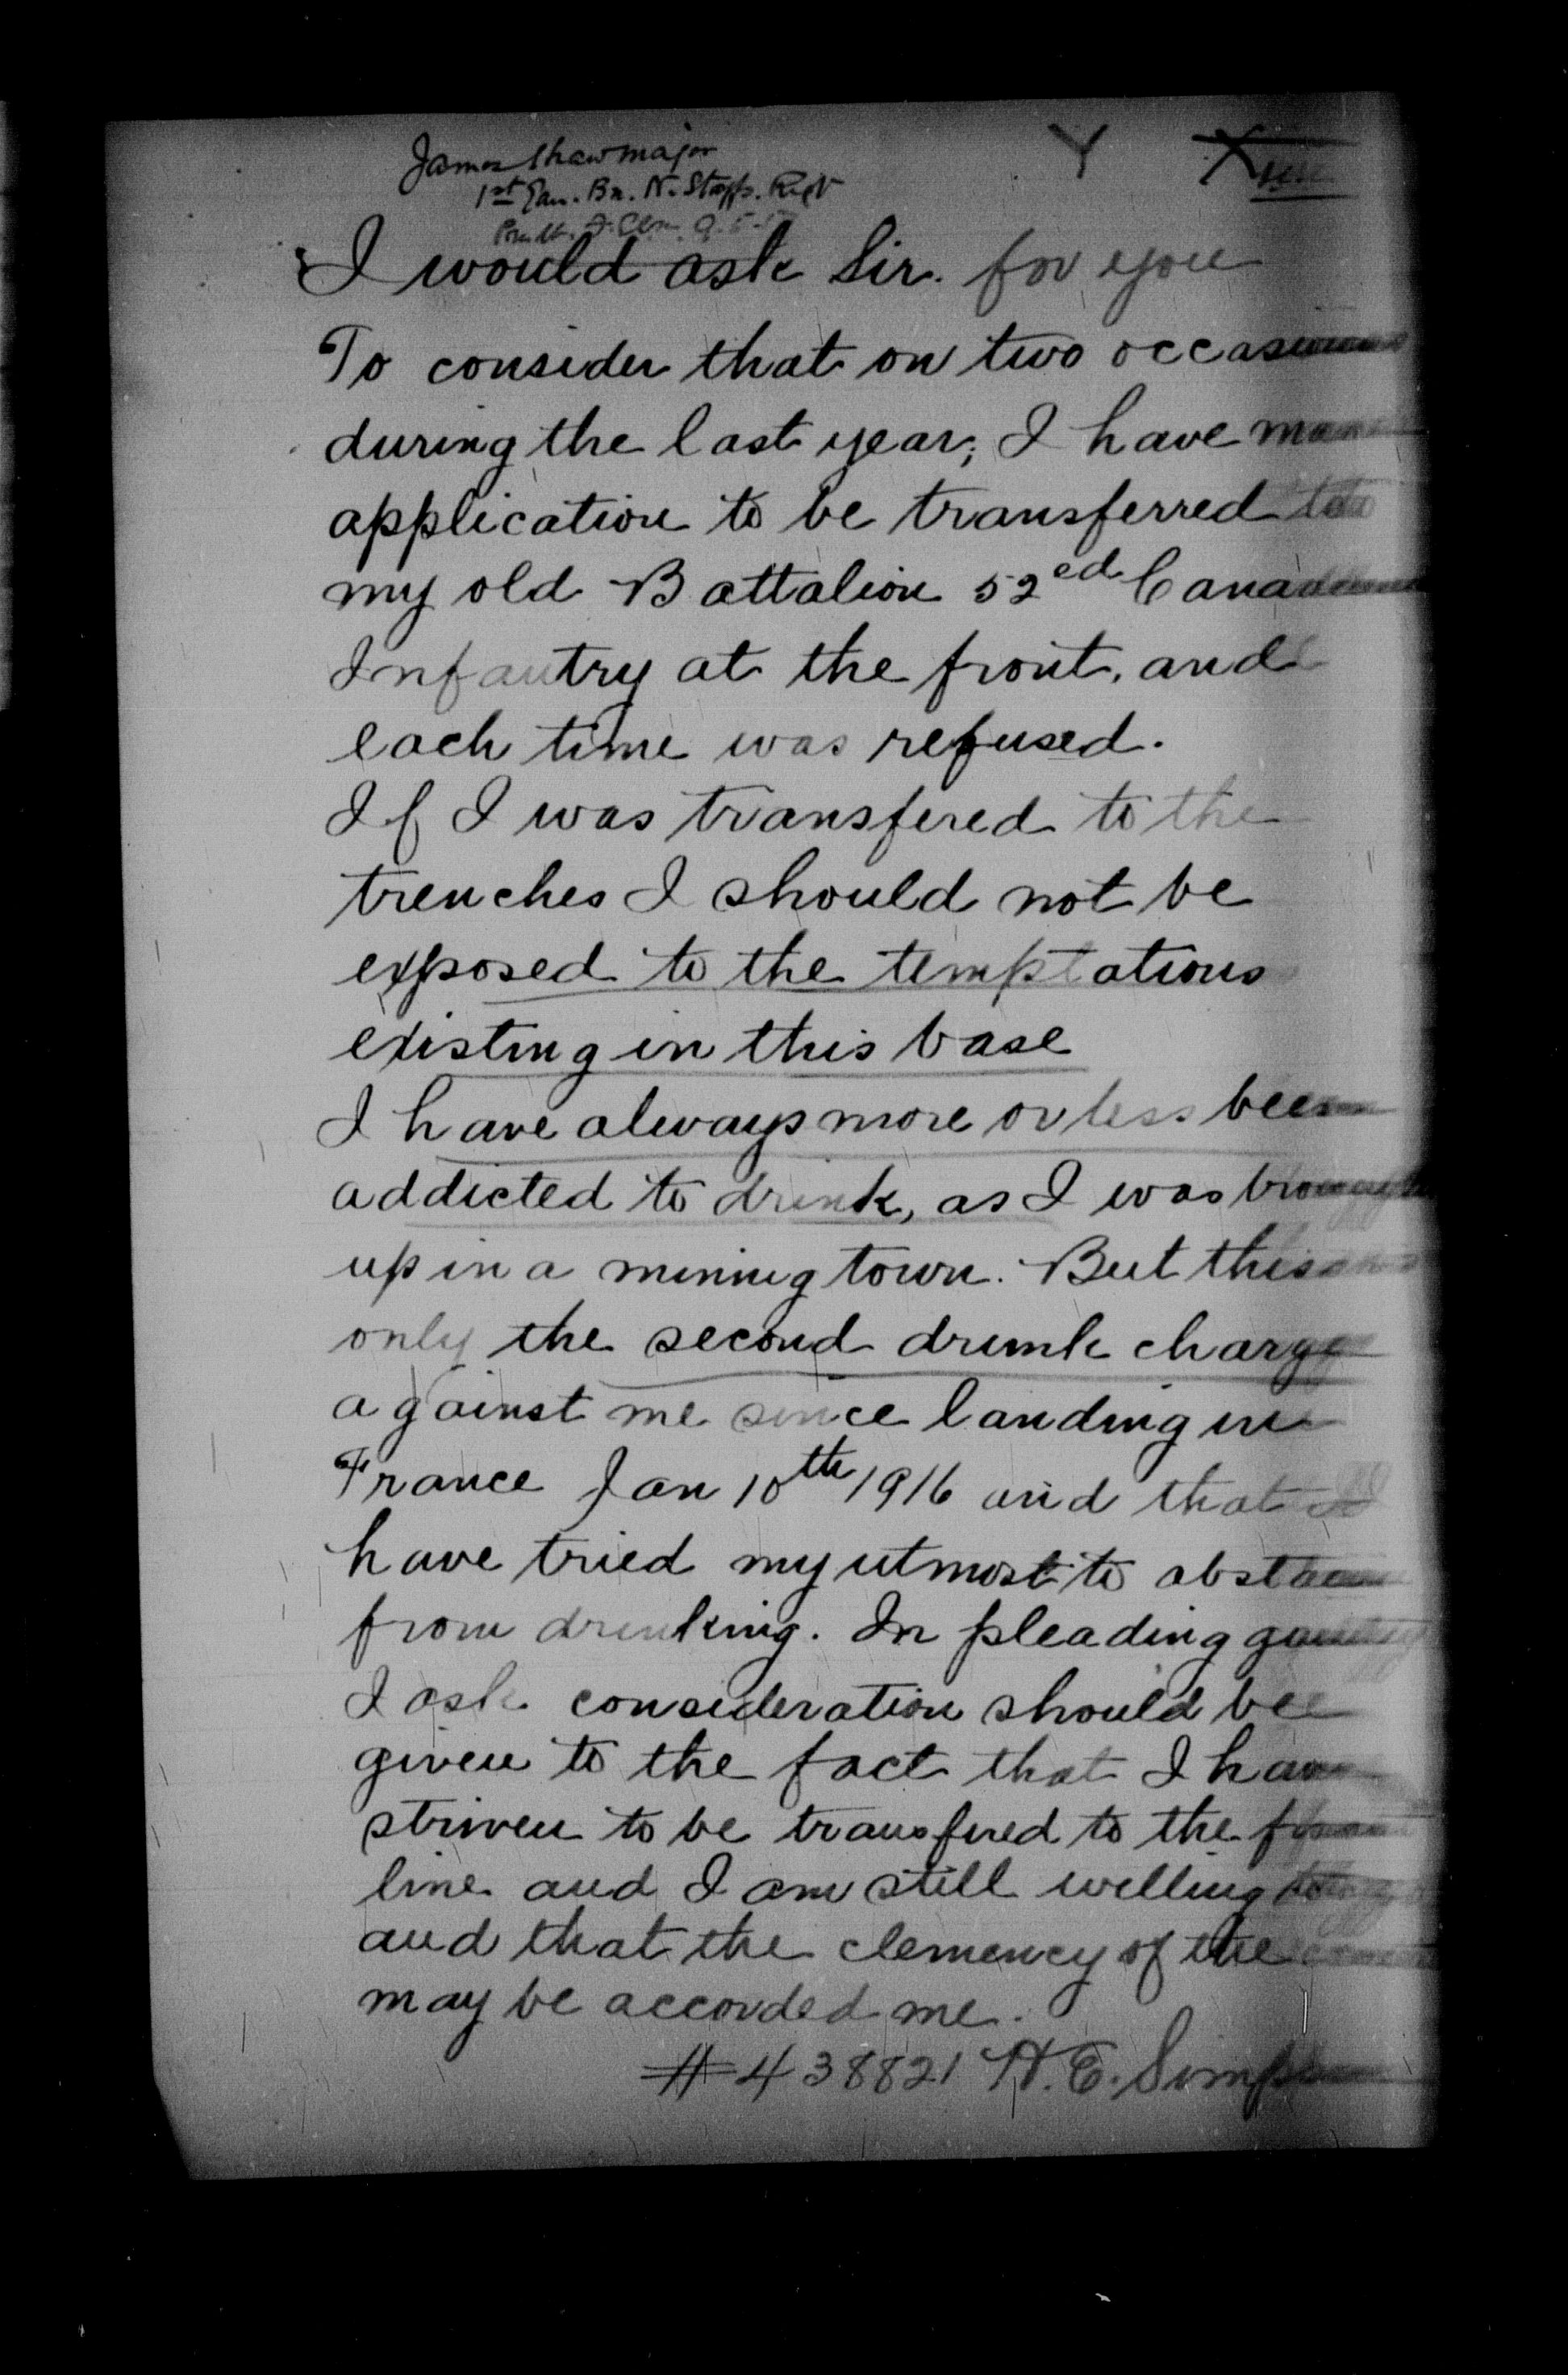 James Shaw Major
1st Gar. Bn. N. Staffs. Regt
9.5.17
Y X
I would ask Sir. for you
To consider that on two occasions
during the last year, I have made
application to be transferred to
my old Battalion 52ed Canadian
Infantry at the front, and
each time was refused.
If I was transfered to the
trenches I should not be
exposed to the temptations
existing in this base
I have always more or less been
addicted to drink, as I was brought
up in a mining town. But this
only the second drunk charge
against me since landing in
France Jan 10th 1916 and that I
have tried my utmost to abstain
from drinking. In pleading guilty
I ask consideration should be
given to the fact that I have
striven to be transfired to the front
line and I am still willing
and that the clemency of the
may be accorded me.
#438821 H. E. Simpson